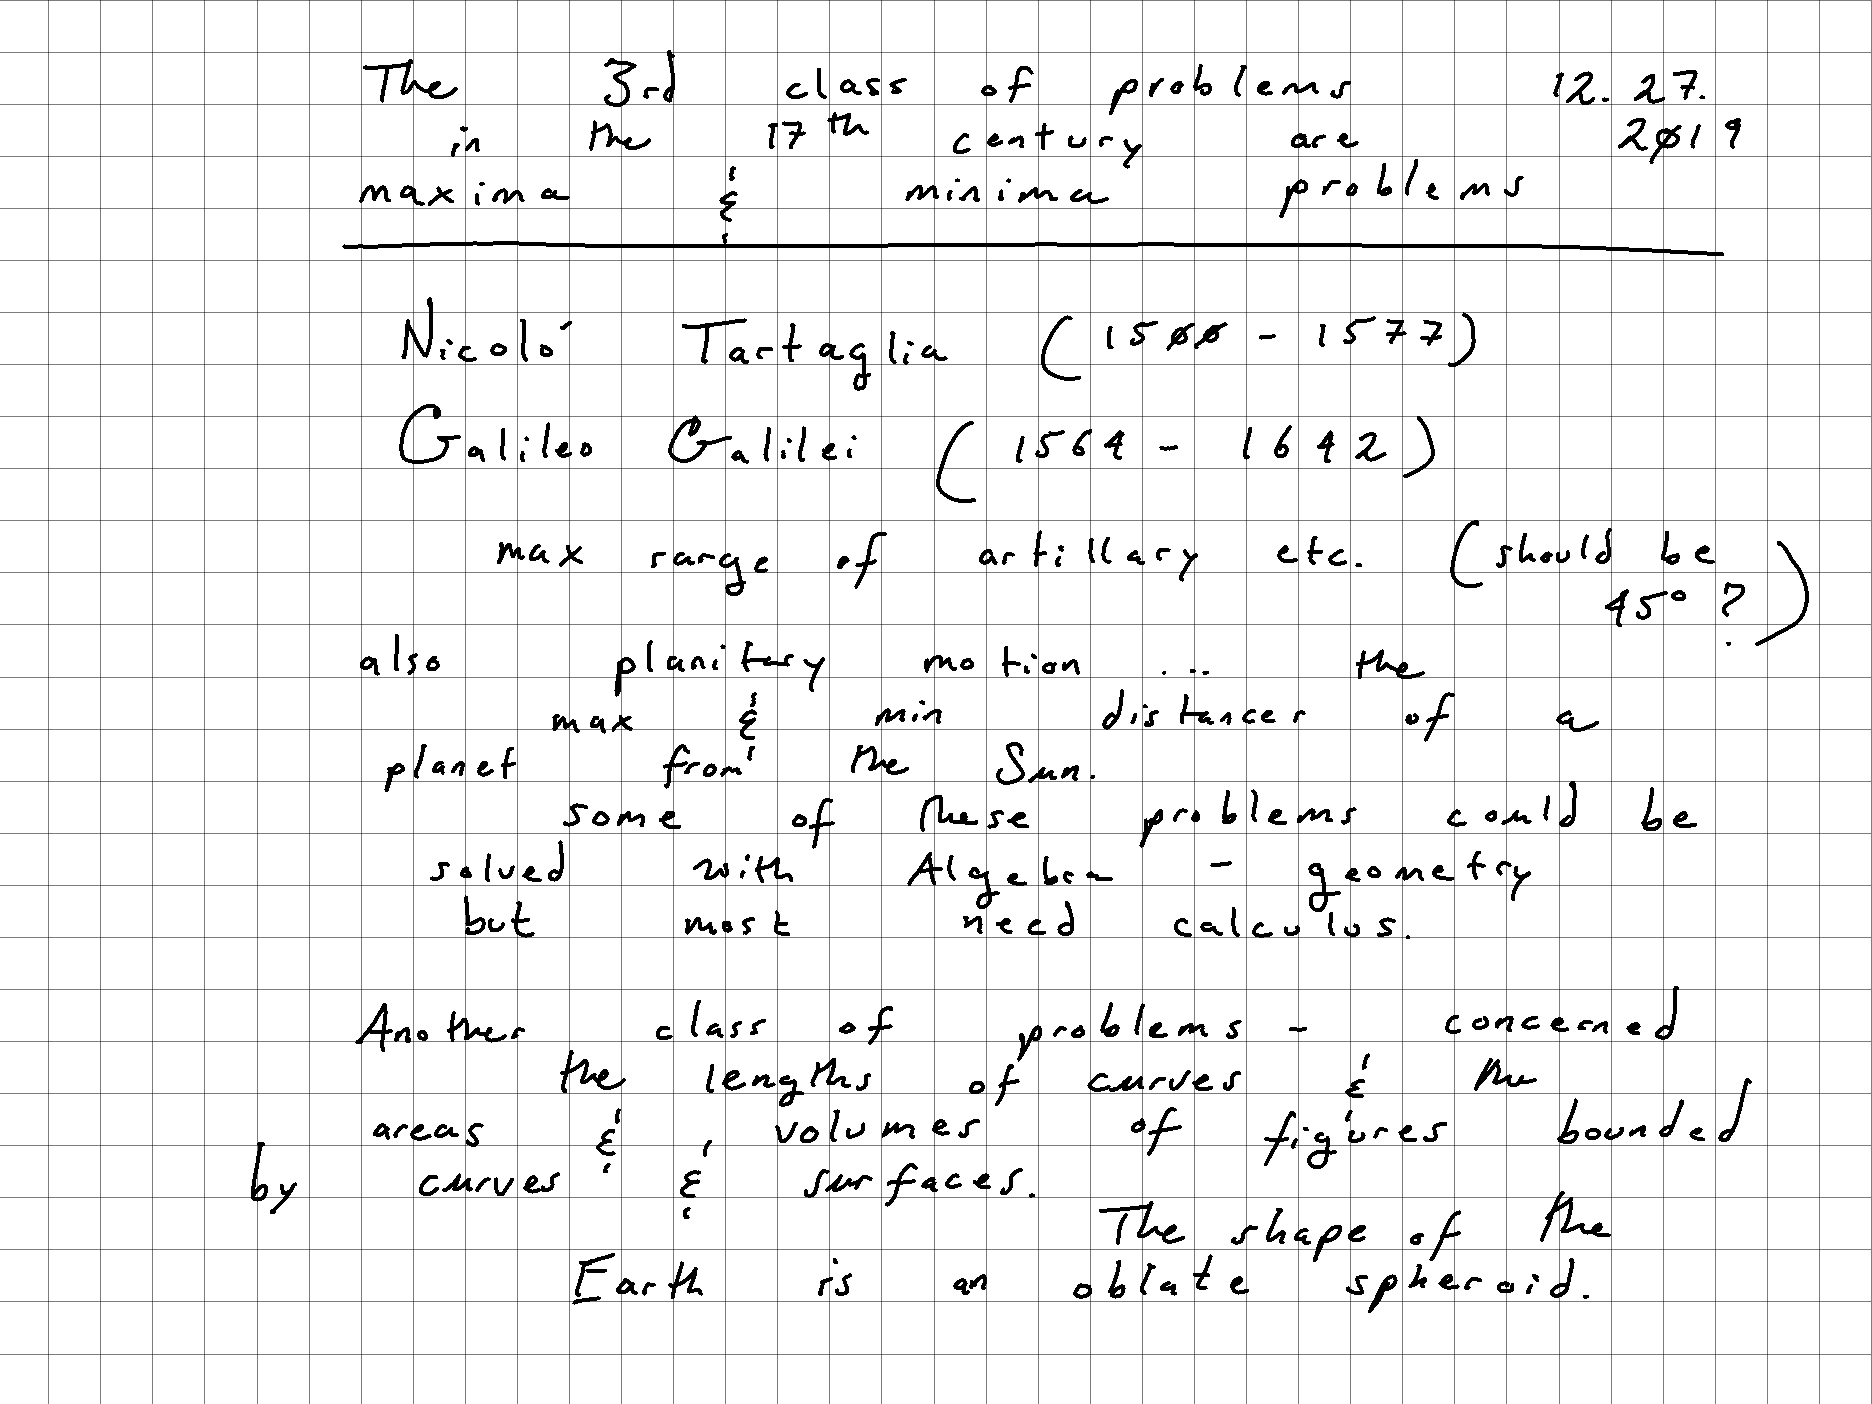 The 3rd class of problems 12.27.
in the 17th century are 2019
maxima & minima problems
Nicoló Tartaglia (1500 - 1577)
Galileo Galilei (1564 - 1642)
max range of artillary etc. (should be
45° ?)
also planitary motion ... the
max & min distances of a
planet from the Sun.
some of these problems could be
solved with Algebra - geometry
but most need calculus.
Another class of problems - concerned
the lengths of curves & the
areas & volumes of figures bounded
by curves & surfaces.
The shape of the
Earth is an oblate spheroid.